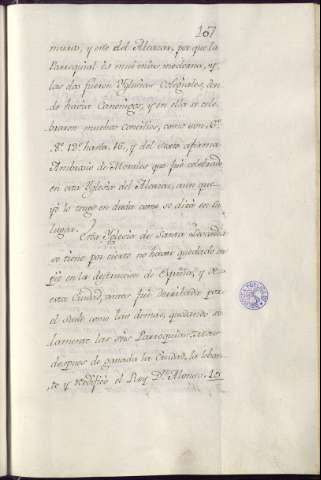 167
mura, y este del Alcazar, porque la
Parroquial es mui mas moderna, y
las dos fueron Yglesias Colegiales, don
de havia Canonigos, y en ella se cele
braron muchos concilios, como son 6º
8º 12º hasta 16, y del sexto afirma
Ambrosio de Morales que fué celebrado
en esta Yglesia del Alcazar, aunque
yo lo tengo en duda como se dirá en su
lugar. Esta Yglesia de Santa Leocadia
se tiene por cierto no haver quedado en
pie en la destruccion de España, y de
esta Ciudad, antes fué derribada por
el suelo como las demas, quedando so
lamente las seis Parroquias
despues de ganada la Ciudad, la leban
to y redificó el Rey Dn Alonso 10